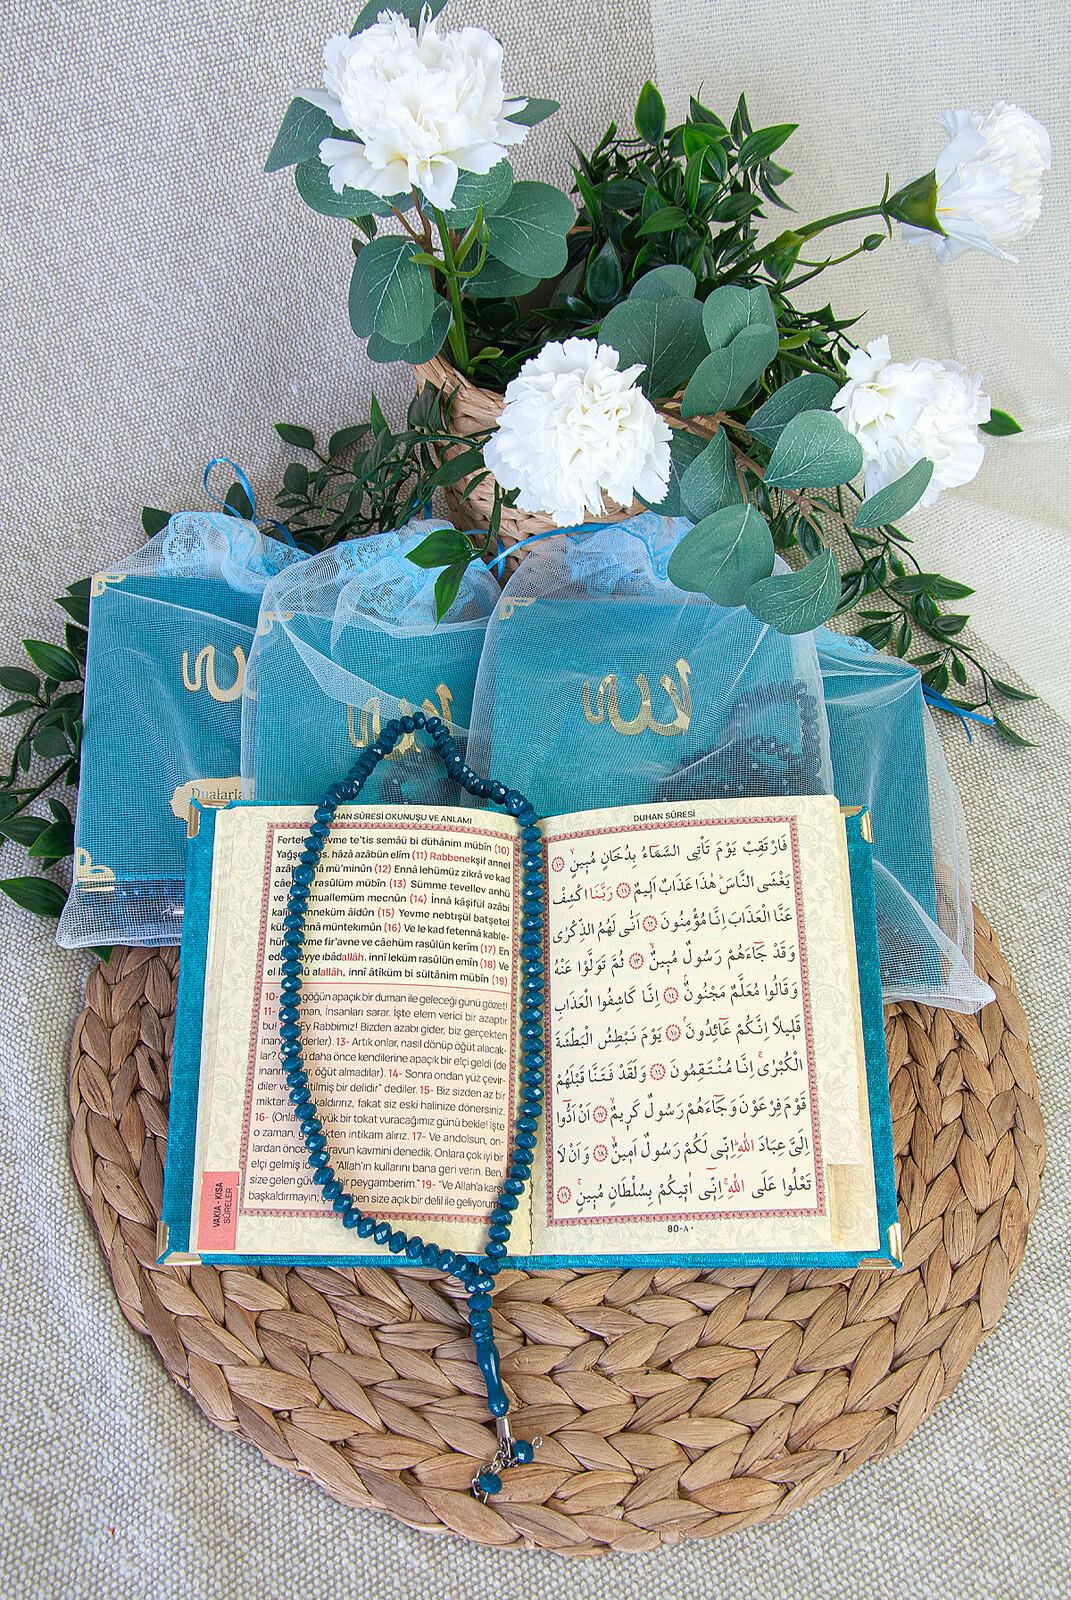 الله
الله
الله
Dualarla
HAN SÛRESİ OKUNUŞU VE ANLAMI
yevme te'tis semâü bi dühânim mübîn (10)
hâzâ azâbün elîm (11) Rabbenekşif annel
mü'minûn (12) Ennâ lehümüz zikrâ ve kad
rasûlüm mübîn (13) Sümme tevellev anhü
muallemüm mecnûn (14) İnnâ kâşifül azâbi
inneküm âidûn (15) Yevme nebtışül batşetel
innâ müntekımûn (16) Ve le kad fetennâ kable-
fir'avne ve câehüm rasûlün kerîm (17) En
ibâdallâh, innî leküm rasûlün emîn (18) Ve
alallâh, innî âtîküm bi sültânim mübîn (19)
10- göğün apaçık bir duman ile geleceği günü gözet!
duman, İnsanları sarar. İşte elem verici bir azaptır
bu! "Ey Rabbimiz! Bizden azabı gider, biz gerçekten
(derler). 13- Artık onlar, nasıl dönüp öğüt alacak-
lar? daha önce kendilerine apaçık bir elçi geldi (de
öğüt almadılar). 14- Sonra ondan yüz çevir-
diler ve bir delidir" dediler. 15- Biz sizden az bir
miktar kaldırırız, fakat siz eski halinize dönersiniz.
16- (Onlara) büyük bir tokat vuracağımız günü bekle! İşte
o zaman, intikam alırız. 17- Ve andolsun, on-
lardan önce kavmini denedik. Onlara çok iyi bir
elçi gelmiş "Allah'ın kullarını bana geri verin. Ben,
size gelen bir peygamberim." 19- "Ve Allah'a karşı
başkaldırmayın; ben size açık bir delil ile geliyorum
VAKIA - KISA
SÛRELER
DUHAN SÛRESİ
فَارْتَقِبْ يَوْمَ تَأْتِى السَّمَٓاءُ بِدُخَانٍ مُبٖينٍۙ ﴿١٠﴾
يَغْشَى النَّاسَۜ هٰذَا عَذَابٌ اَلٖيمٌ ﴿١١﴾ رَبَّنَا اكْشِفْ
عَنَّا الْعَذَابَ اِنَّا مُؤْمِنُونَ ﴿١٢﴾ اَنّٰى لَهُمُ الذِّكْرٰى
وَقَدْ جَٓاءَهُمْ رَسُولٌ مُبٖينٌۙ ﴿١٣﴾ ثُمَّ تَوَلَّوْا عَنْهُ
وَقَالُوا مُعَلَّمٌ مَجْنُونٌۢ ﴿١٤﴾ اِنَّا كَاشِفُوا الْعَذَابِ
قَلٖيلاً اِنَّكُمْ عَٓائِدُونَۢ ﴿١٥﴾ يَوْمَ نَبْطِشُ الْبَطْشَةَ
الْكُبْرٰىۚ اِنَّا مُنْتَقِمُونَ ﴿١٦﴾ وَلَقَدْ فَتَنَّا قَبْلَهُمْ
قَوْمَ فِرْعَوْنَ وَجَٓاءَهُمْ رَسُولٌ كَرٖيمٌۙ ﴿١٧﴾ اَنْ اَدُّٓوا
اِلَىَّ عِبَادَ اللّٰهِۜ اِنّٖى لَكُمْ رَسُولٌ اَمٖينٌۙ ﴿١٨﴾ وَاَنْ لَا
تَعْلُوا عَلَى اللّٰهِۚ اِنّٖٓى اٰتٖيكُمْ بِسُلْطَانٍ مُبٖينٍۚ ﴿١٩﴾
80-٨٠